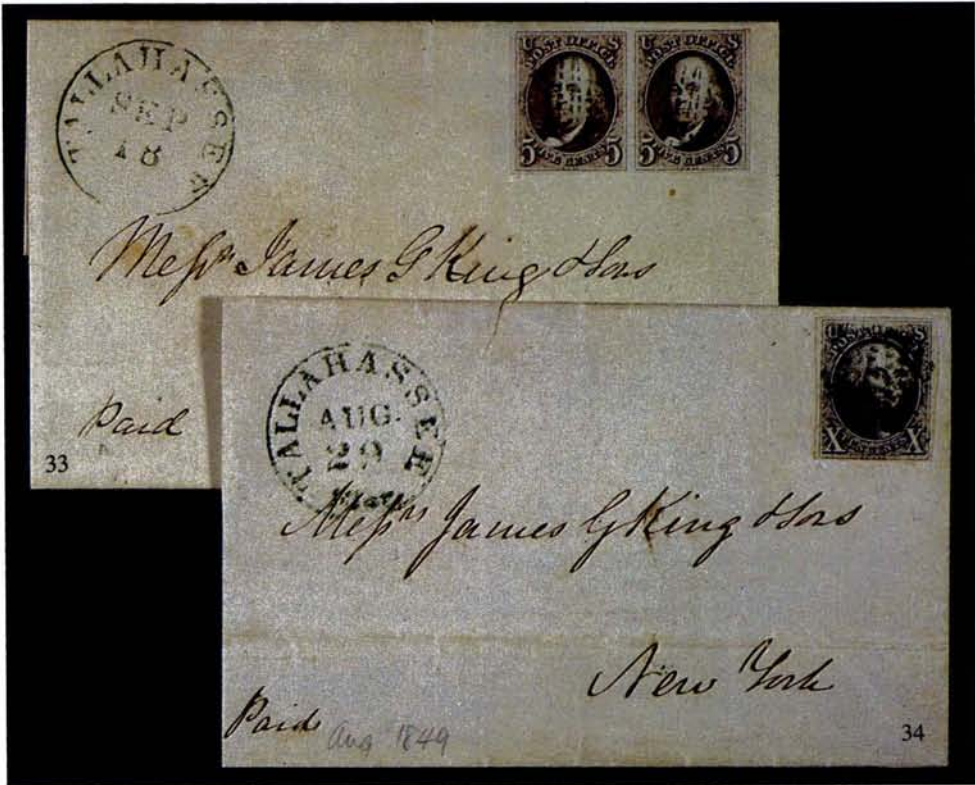 TALLAHASSEE
SEP
18
U S
POST OFFICE
FIVE CENTS
5 5
U S
POST OFFICE
FIVE CENTS
5 5
Messrs James G King & Sons
Paid
33
TALLAHASSEE
AUG.
29
U S
POST OFFICE
X X
Messrs James G King & Sons
New York
Paid
Aug 1849
34